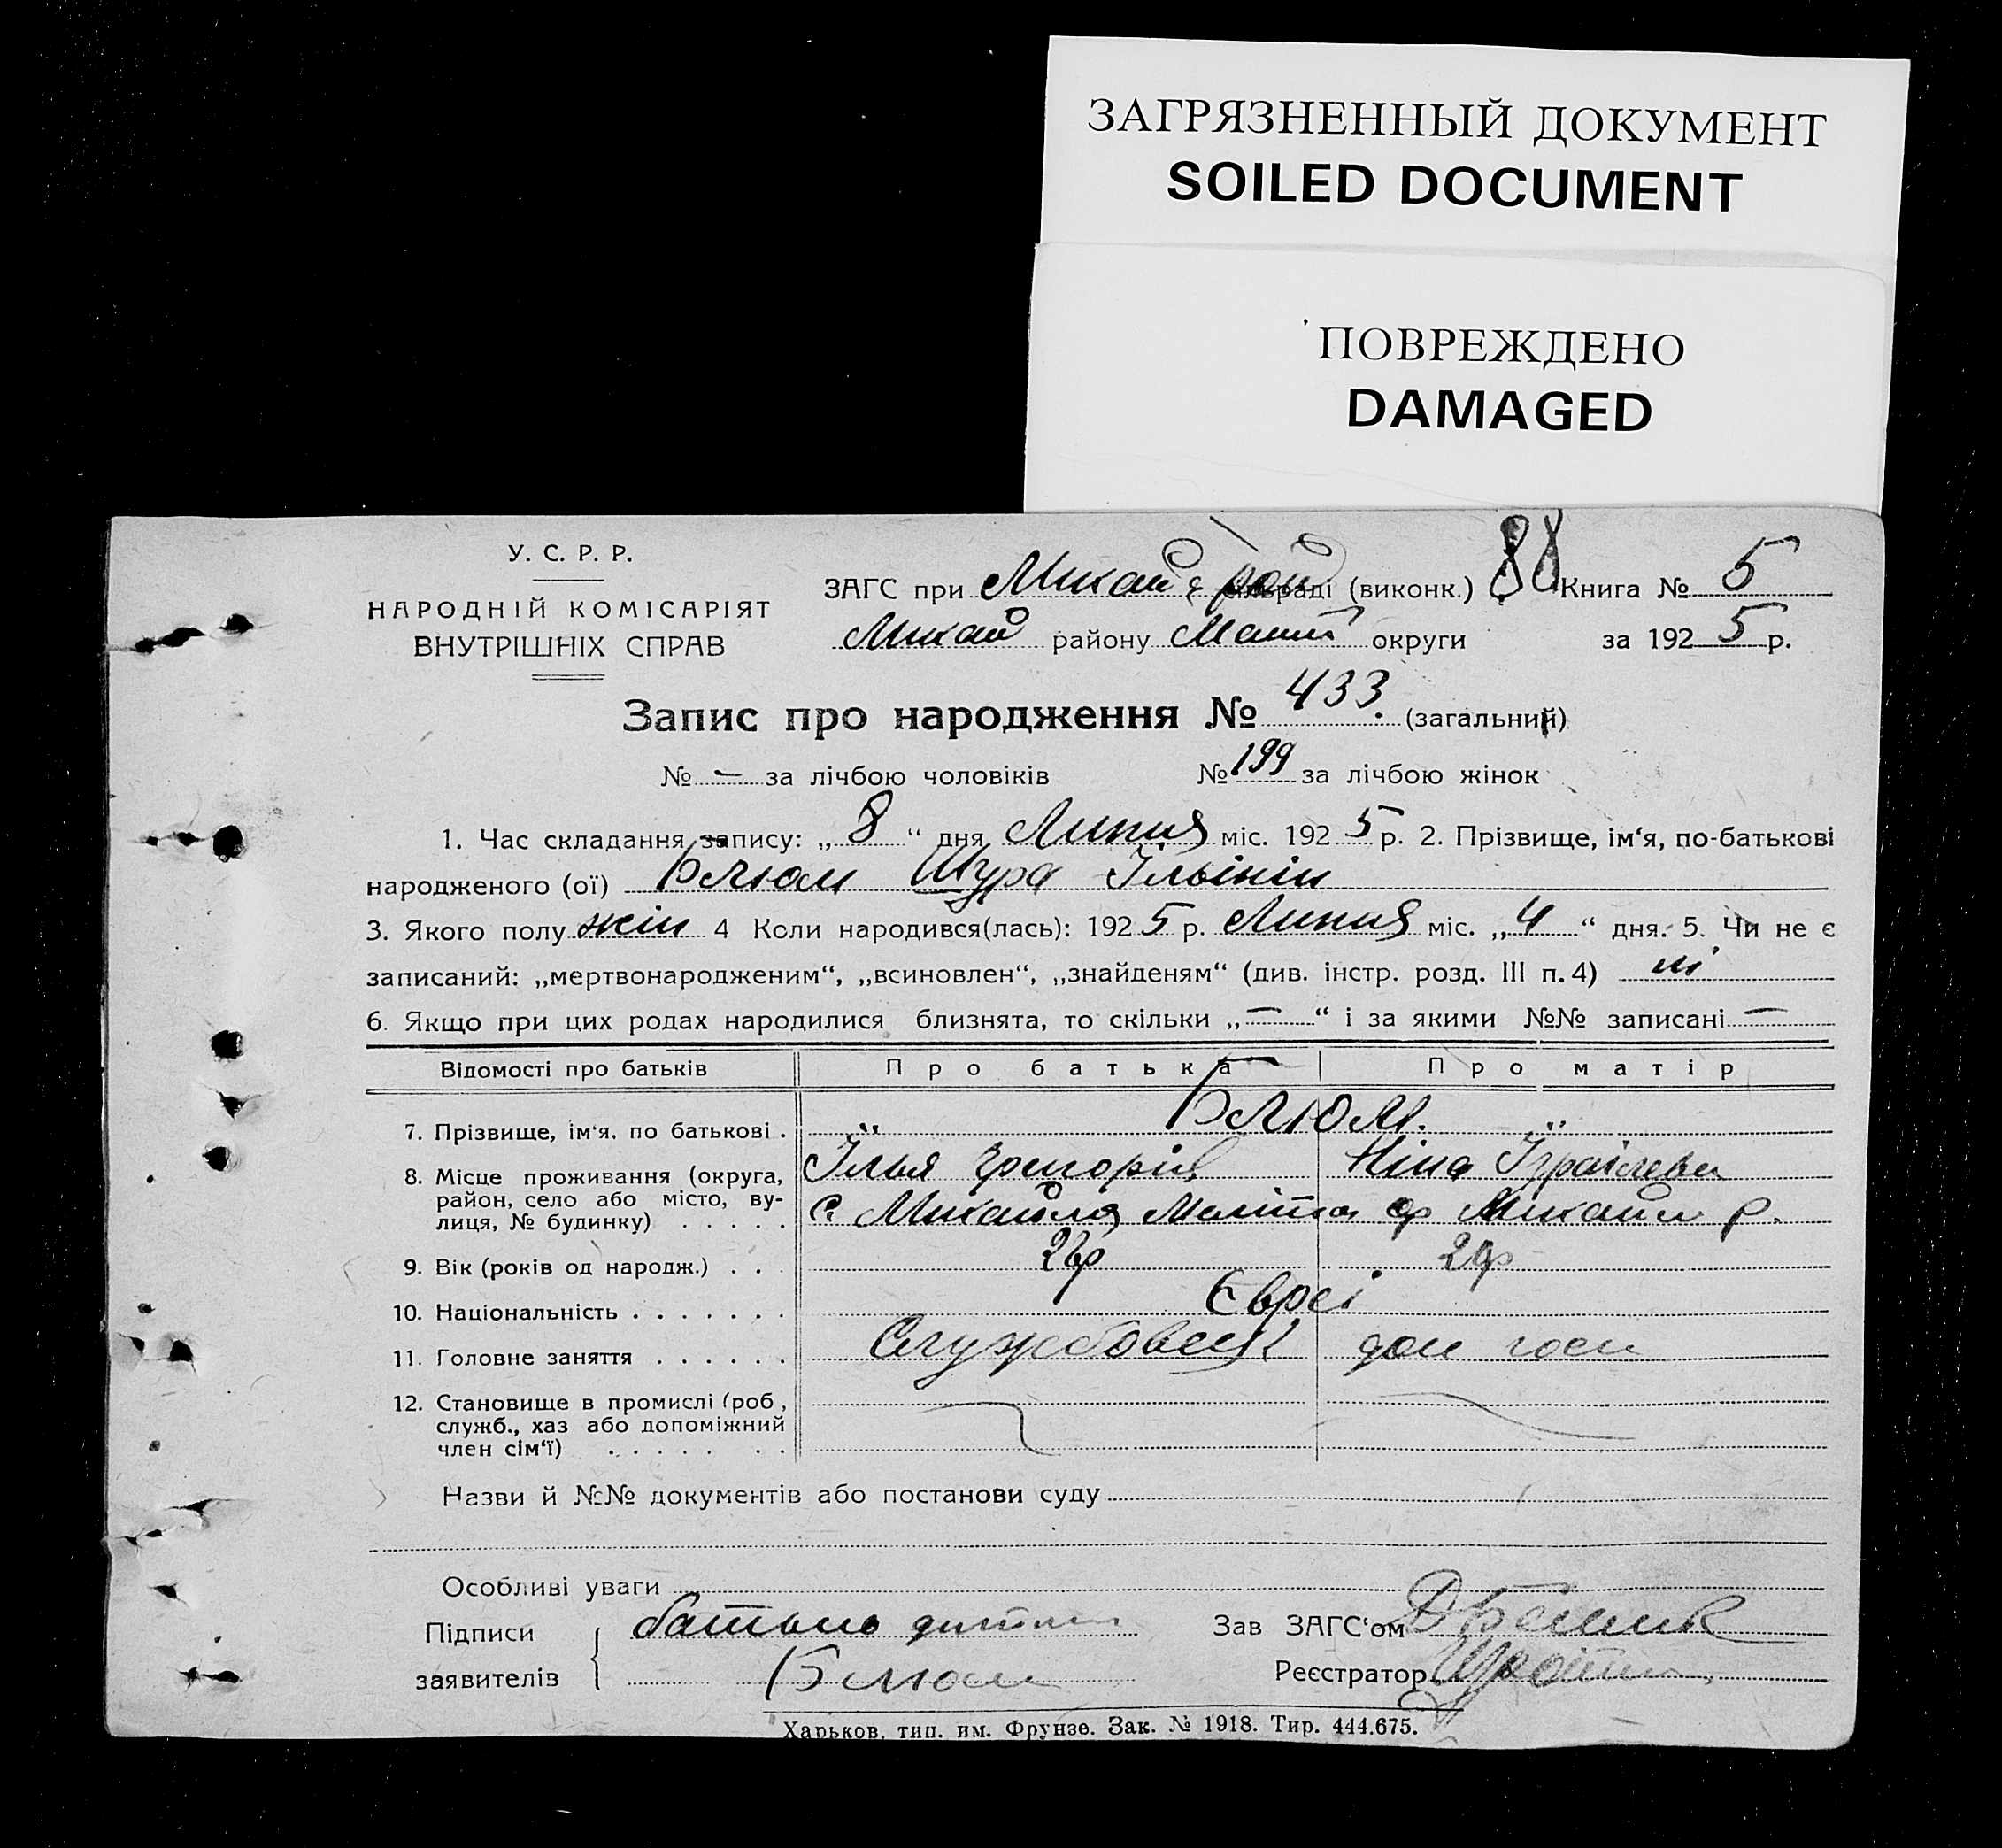 ЗАГРЯЗНЕННЫЙ ДОКУМЕНТ
SOILED DOCUMENT
ПОВРЕЖДЕНО
DAMAGED
У. С. Р. Р.
НАРОДНІЙ КОМІСАРІЯТ
ВНУТРІШНІХ СПРАВ
ЗАГС при Микай рай (виконк.) 88 Книга № 5
Микай району округи за 1925 р.
Запис про народження № 433. (загальний)
№ — за лічбою чоловіків № 199 за лічбою жінок
1. Час складання запису: „ 8 “ дня Липня міс. 1925 р. 2. Прізвище, ім‘я, по-батькові
народженого (ої) Блюм Шура Ільінін
3. Якого полу жін 4 Коли народився(лась): 1925 р. Липня міс. „ 4 “ дня. 5. Чи не є
записаний: „мертвонародженим“, „всиновлен“, „знайденям“ (див. інстр. розд. III п. 4) ні
6. Якщо при цих родах народилися близнята, то скільки „ — “ і за якими №№ записані —
Відомості про батьків Про батька Про матір
7. Прізвище, ім‘я. по батькові . Блюм.
Ілья Григорів Ніна Ізраілевн
8. Місце проживання (округа,
район, село або місто, ву-
лиця, № будинку) . . . . . с. Микайл р.
9. Вік (років од народж.) . . . 26р
10. Національність . . . . . . . Євреі
11. Головне заняття . . . . . . Службовець дом госп
12. Становище в промислі (роб,
служб., хаз або допоміжний
член сім‘ї) . . . . . . .
Назви й №№ документів або постанови суду
Особливі уваги
Підписи батько дитини Зав ЗАГС‘ом
заявителів Блюм Реєстратор
Харьков, тип. им. Фрунзе. Зак. № 1918. Тир. 444.675.